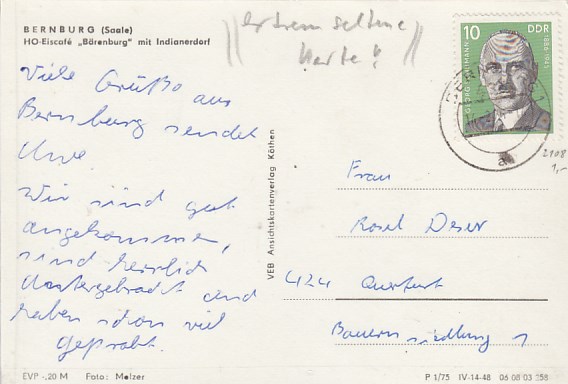 BERNBURG (Saale)
HO-Eiscafé „Bärenburg" mit Indianerdorf
extrem seltene
Karte!
10 DDR
1886-1945
Viele Grüße aus
Bernburg sendet
Uwe.
Wir sind gut
angekommen,
sind herrlich
untergebracht und
haben schon viel
geprobt.
VEB Ansichtskartenverlag Köthen
2108
1,-
Frau
Rosel
424 Querfurt
Bauernsiedlung 1
EVP -,20 M Foto: Melzer
P 1/75 IV-14-48 06 08 03 358